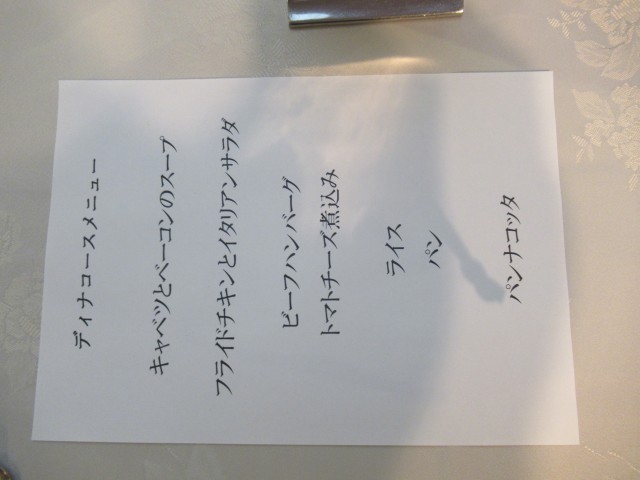 ディナコースメニュー
キャベツとベーコンのスープ
フライドチキンとイタリアンサラダ
ビーフハンバーグ
トマトチーズ煮込み
ライス
パン
パンナコッタ